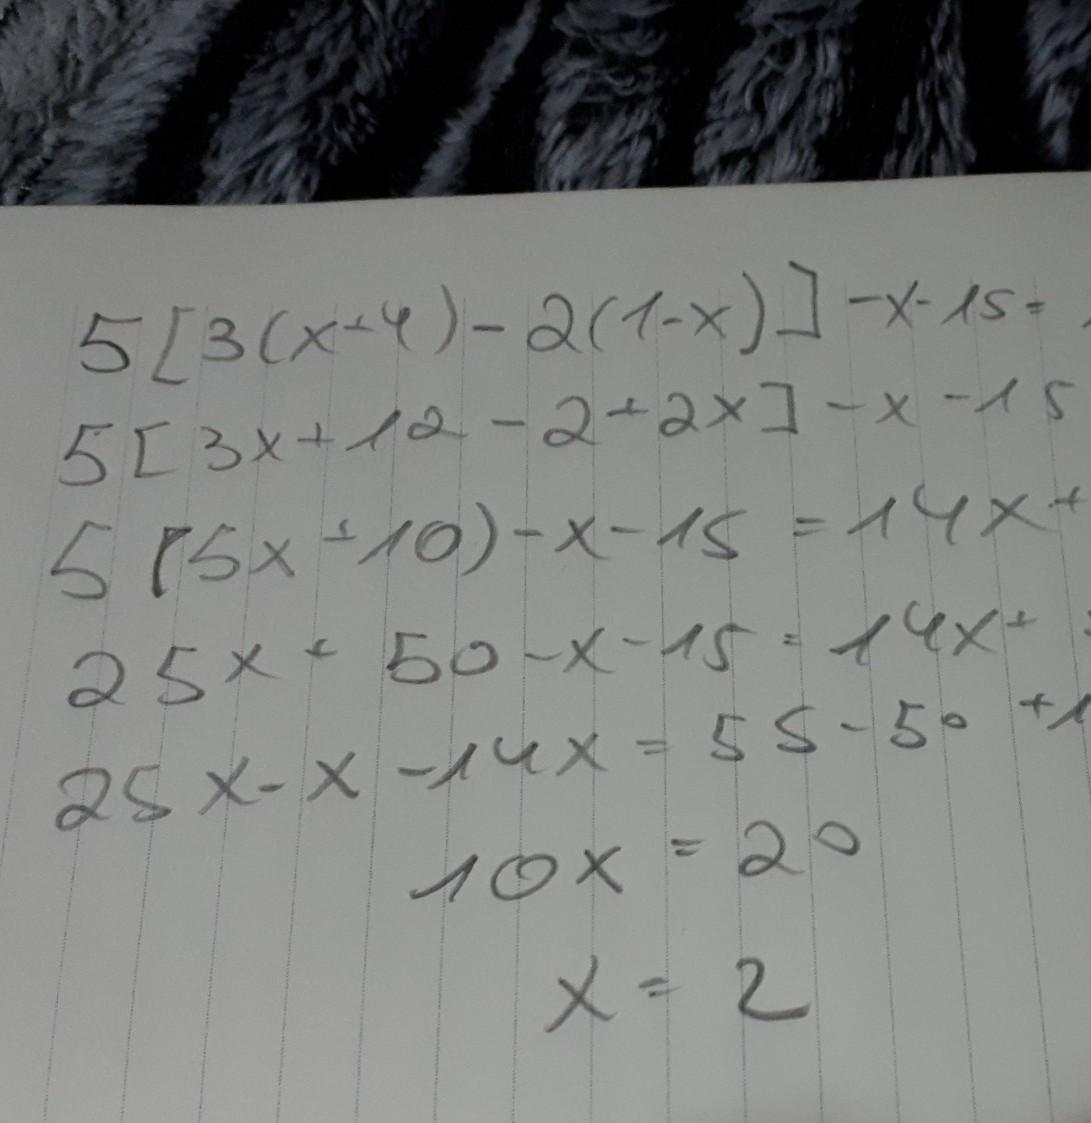 5[3(x+4)-2(1-x)]-x-15=
5[3x+12-2+2x]-x-15
5(5x+10)-x-15=14x+
25x+50-x-15=14x+
25x-x-14x=55-50+1
10x=20
x=2